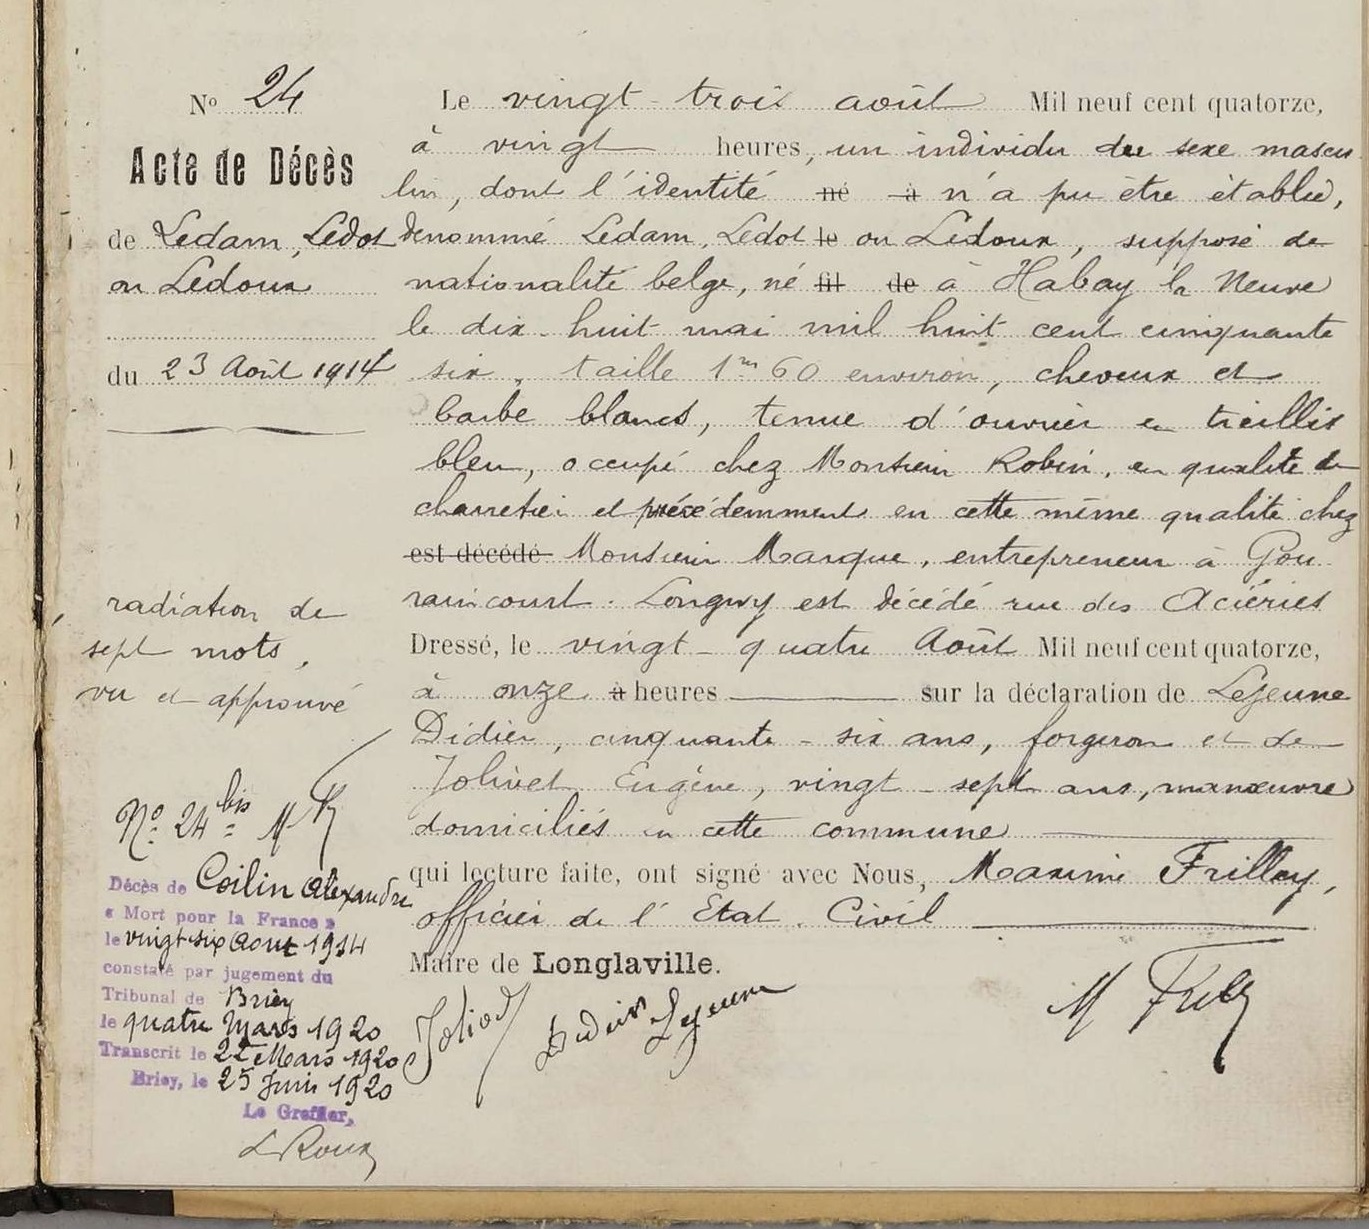 N° 24
Acte de Décès
de Ledam, Ledot
ou Ledoux
du 23 Août 1914
radiation de
sept mots,
vu et approuvé
N° 24 bis
Décès de Coilin Alexandre
« Mort pour la France »
le vingt six Aout 1914
constaté par jugement du
Tribunal de Briey
le quatre Mars 1920
Transcrit le 22 Mars 1920
Briey, le 25 Juin 1920
Le Greffier,
L Roux
Le vingt-trois août Mil neuf cent quatorze,
à vingt heures, un individu du sexe mascu
lin, dont l'identité né à n'a pu être établie,
denommé Ledam, Ledot le ou Ledoux, supposé de
nationalité belge, né fil de à Habay la Neuve
le dix-huit mai mil huit cent cinquante
six, taille 1m60 environ, cheveux et
barbe blancs, tenue d'ouvrier en treillis
bleu, occupé chez Monsieur Robin, en qualité de
charretier et précédemment en cette même qualité chez
est décédé Monsieur Marque, entrepreneur à Gou
raincourt-Longwy est décédé rue des Aciéries
Dressé, le vingt-quatre Août Mil neuf cent quatorze,
à onze à heures sur la déclaration de Lejeune
Didier, cinquante-six ans, forgeron et de
Jolivet Eugène, vingt-sept ans, manœuvre
domiciliés en cette commune
qui lecture faite, ont signé avec Nous, Maxime Frilley,
officier de l'Etat-Civil
Maire de Longlaville.
Didier Lejeune